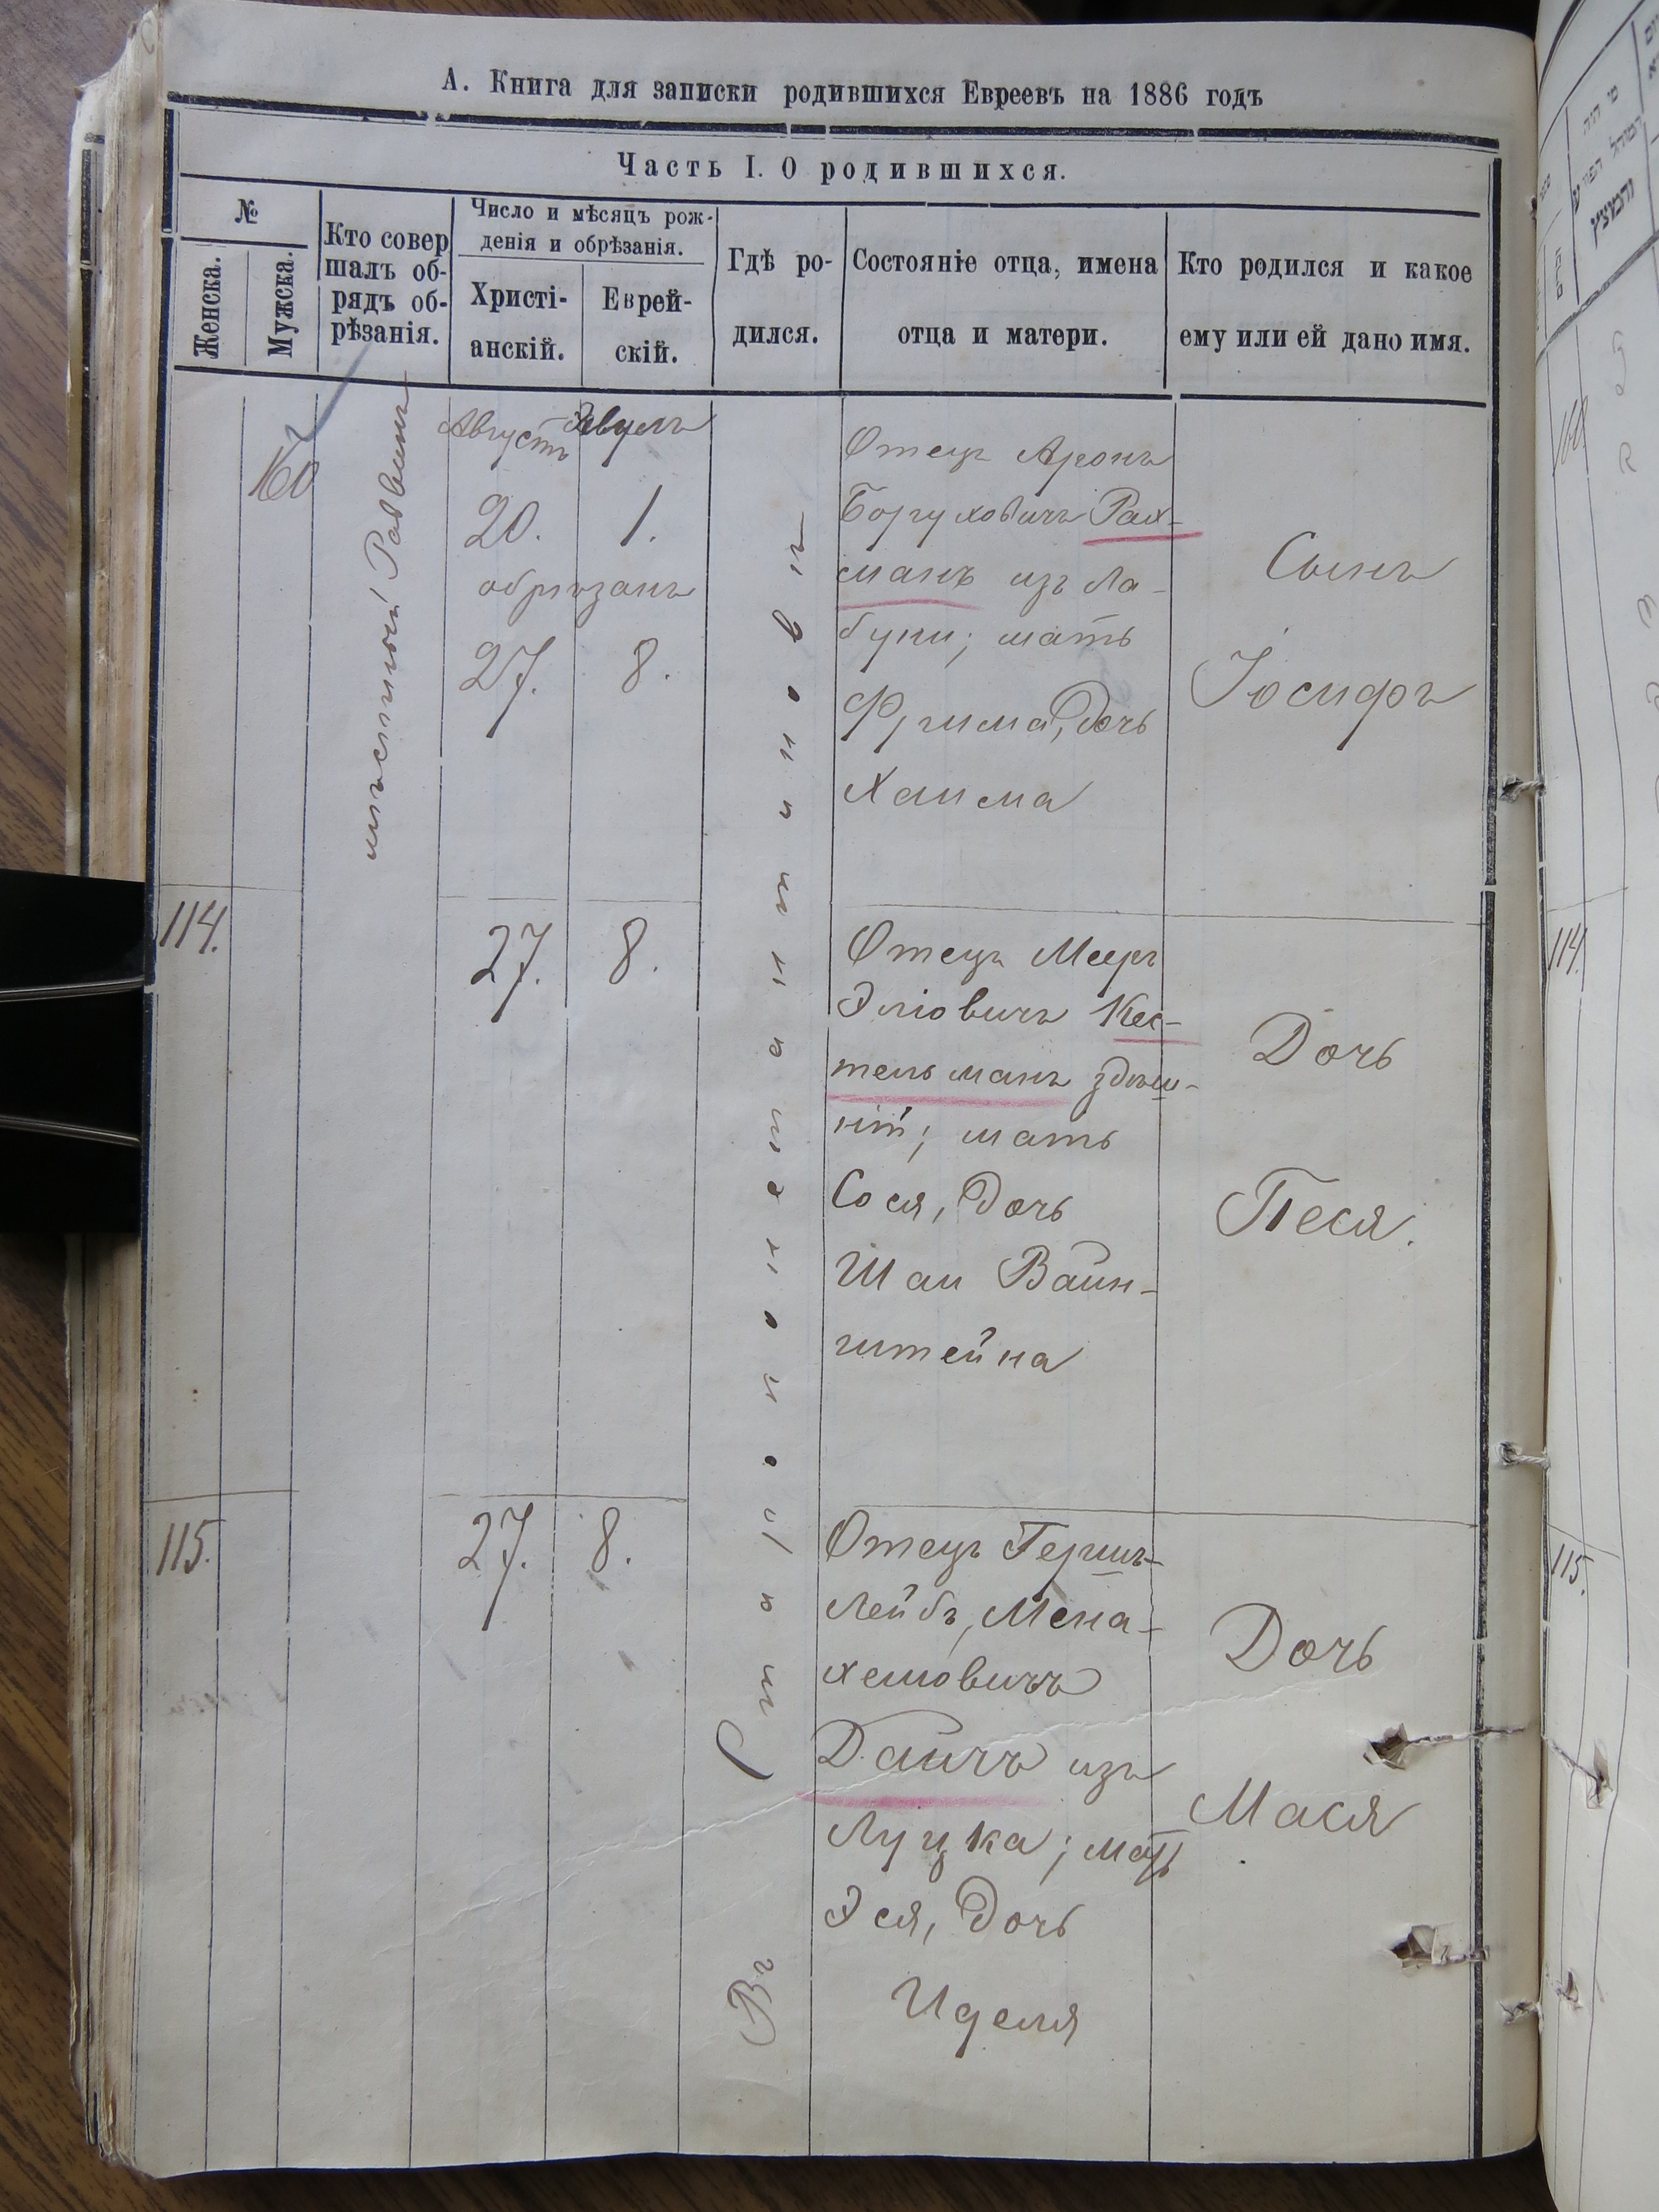 А. Книга для записки родившихся Евреевъ на 1886 годъ
Часть I. О родившихся.
№
Женска.
Мужска.
Кто совер
шалъ об-
рядъ об-
рѣзанія.
Число и мѣсяцъ рож-
денія и обрѣзанія.
Христі-
анскій.
Еврей-
скій.
Гдѣ ро-
дился.
Состояніе отца, имена
отца и матери.
Кто родился и какое
ему или ей дано имя.
160
мѣстный Раввинъ
Августъ
Элулъ
20.
1.
обрѣзанъ
27.
8.
Въ Староконстантиновѣ
Отецъ Аронъ
Боруховичъ Рах-
манъ изъ Ла-
буни; мать
Фрима, дочь
Хаима
Сынъ
Іосифъ
114.
27.
8.
Отецъ Мееръ
Эліовичъ Кес-
тельманъ здѣш-
ній; мать
Сося, дочь
Шаи Вайн-
штейна
Дочь
Песя.
115.
27.
8.
Отецъ Гершъ-
Лейбъ, Мена-
хемовичъ
Дайчъ изъ
Луцка; мать
Эся, дочь
Иделя
Дочь
Мася
160
114.
115.